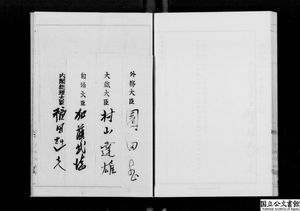 外務大臣
園田直
大蔵大臣
村山達雄
自治大臣
加藤武徳
内閣総理大臣
福田赳夫
国立公文書館
National Archives of Japan